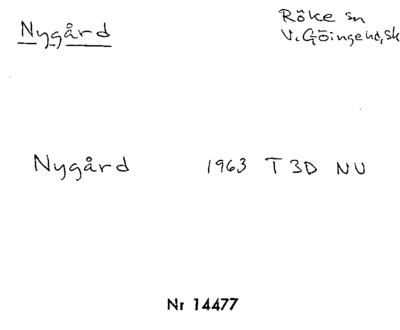 Nygård
Röke sn
V. Göinge hd, Sk
Nygård 1963 T 3D NU
Nr 14477